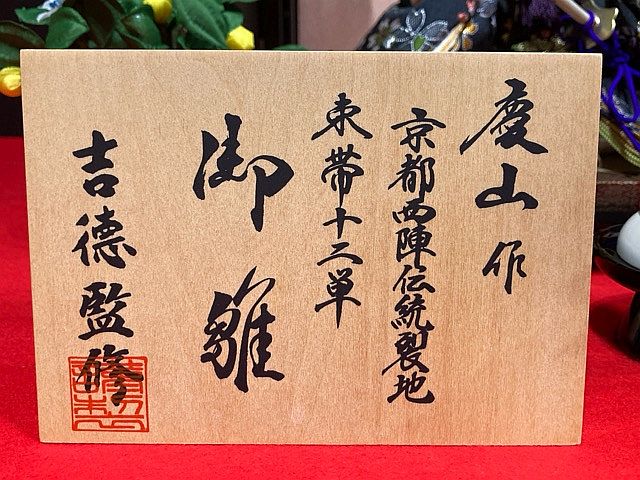 慶山 作
京都西陣伝統裂地
束帯十二単
御雛
吉德監修